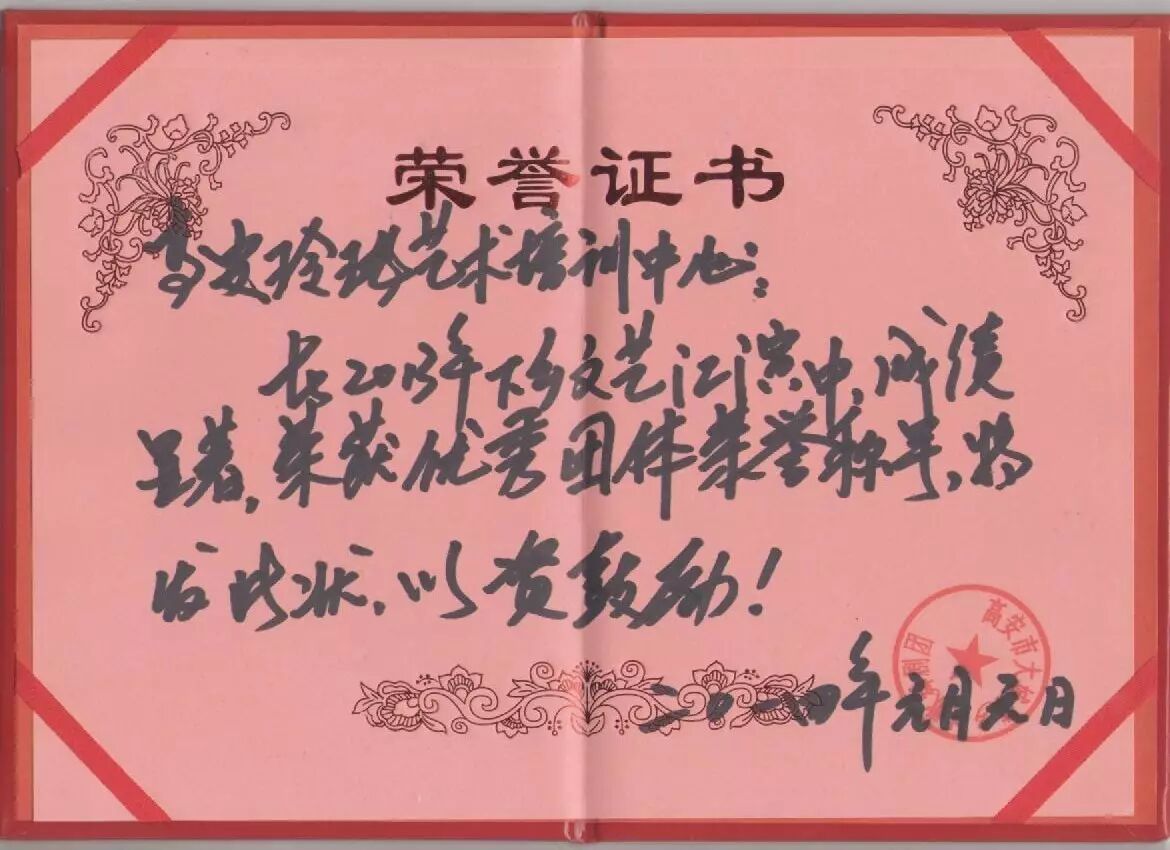 荣誉证书
高安玲珑艺术培训中心:
在2013年下乡文艺汇演中,成绩
显著,荣获优秀团体荣誉称号,特
发此状,以资鼓励!
高安市大
剧团
二〇一四年元月元日